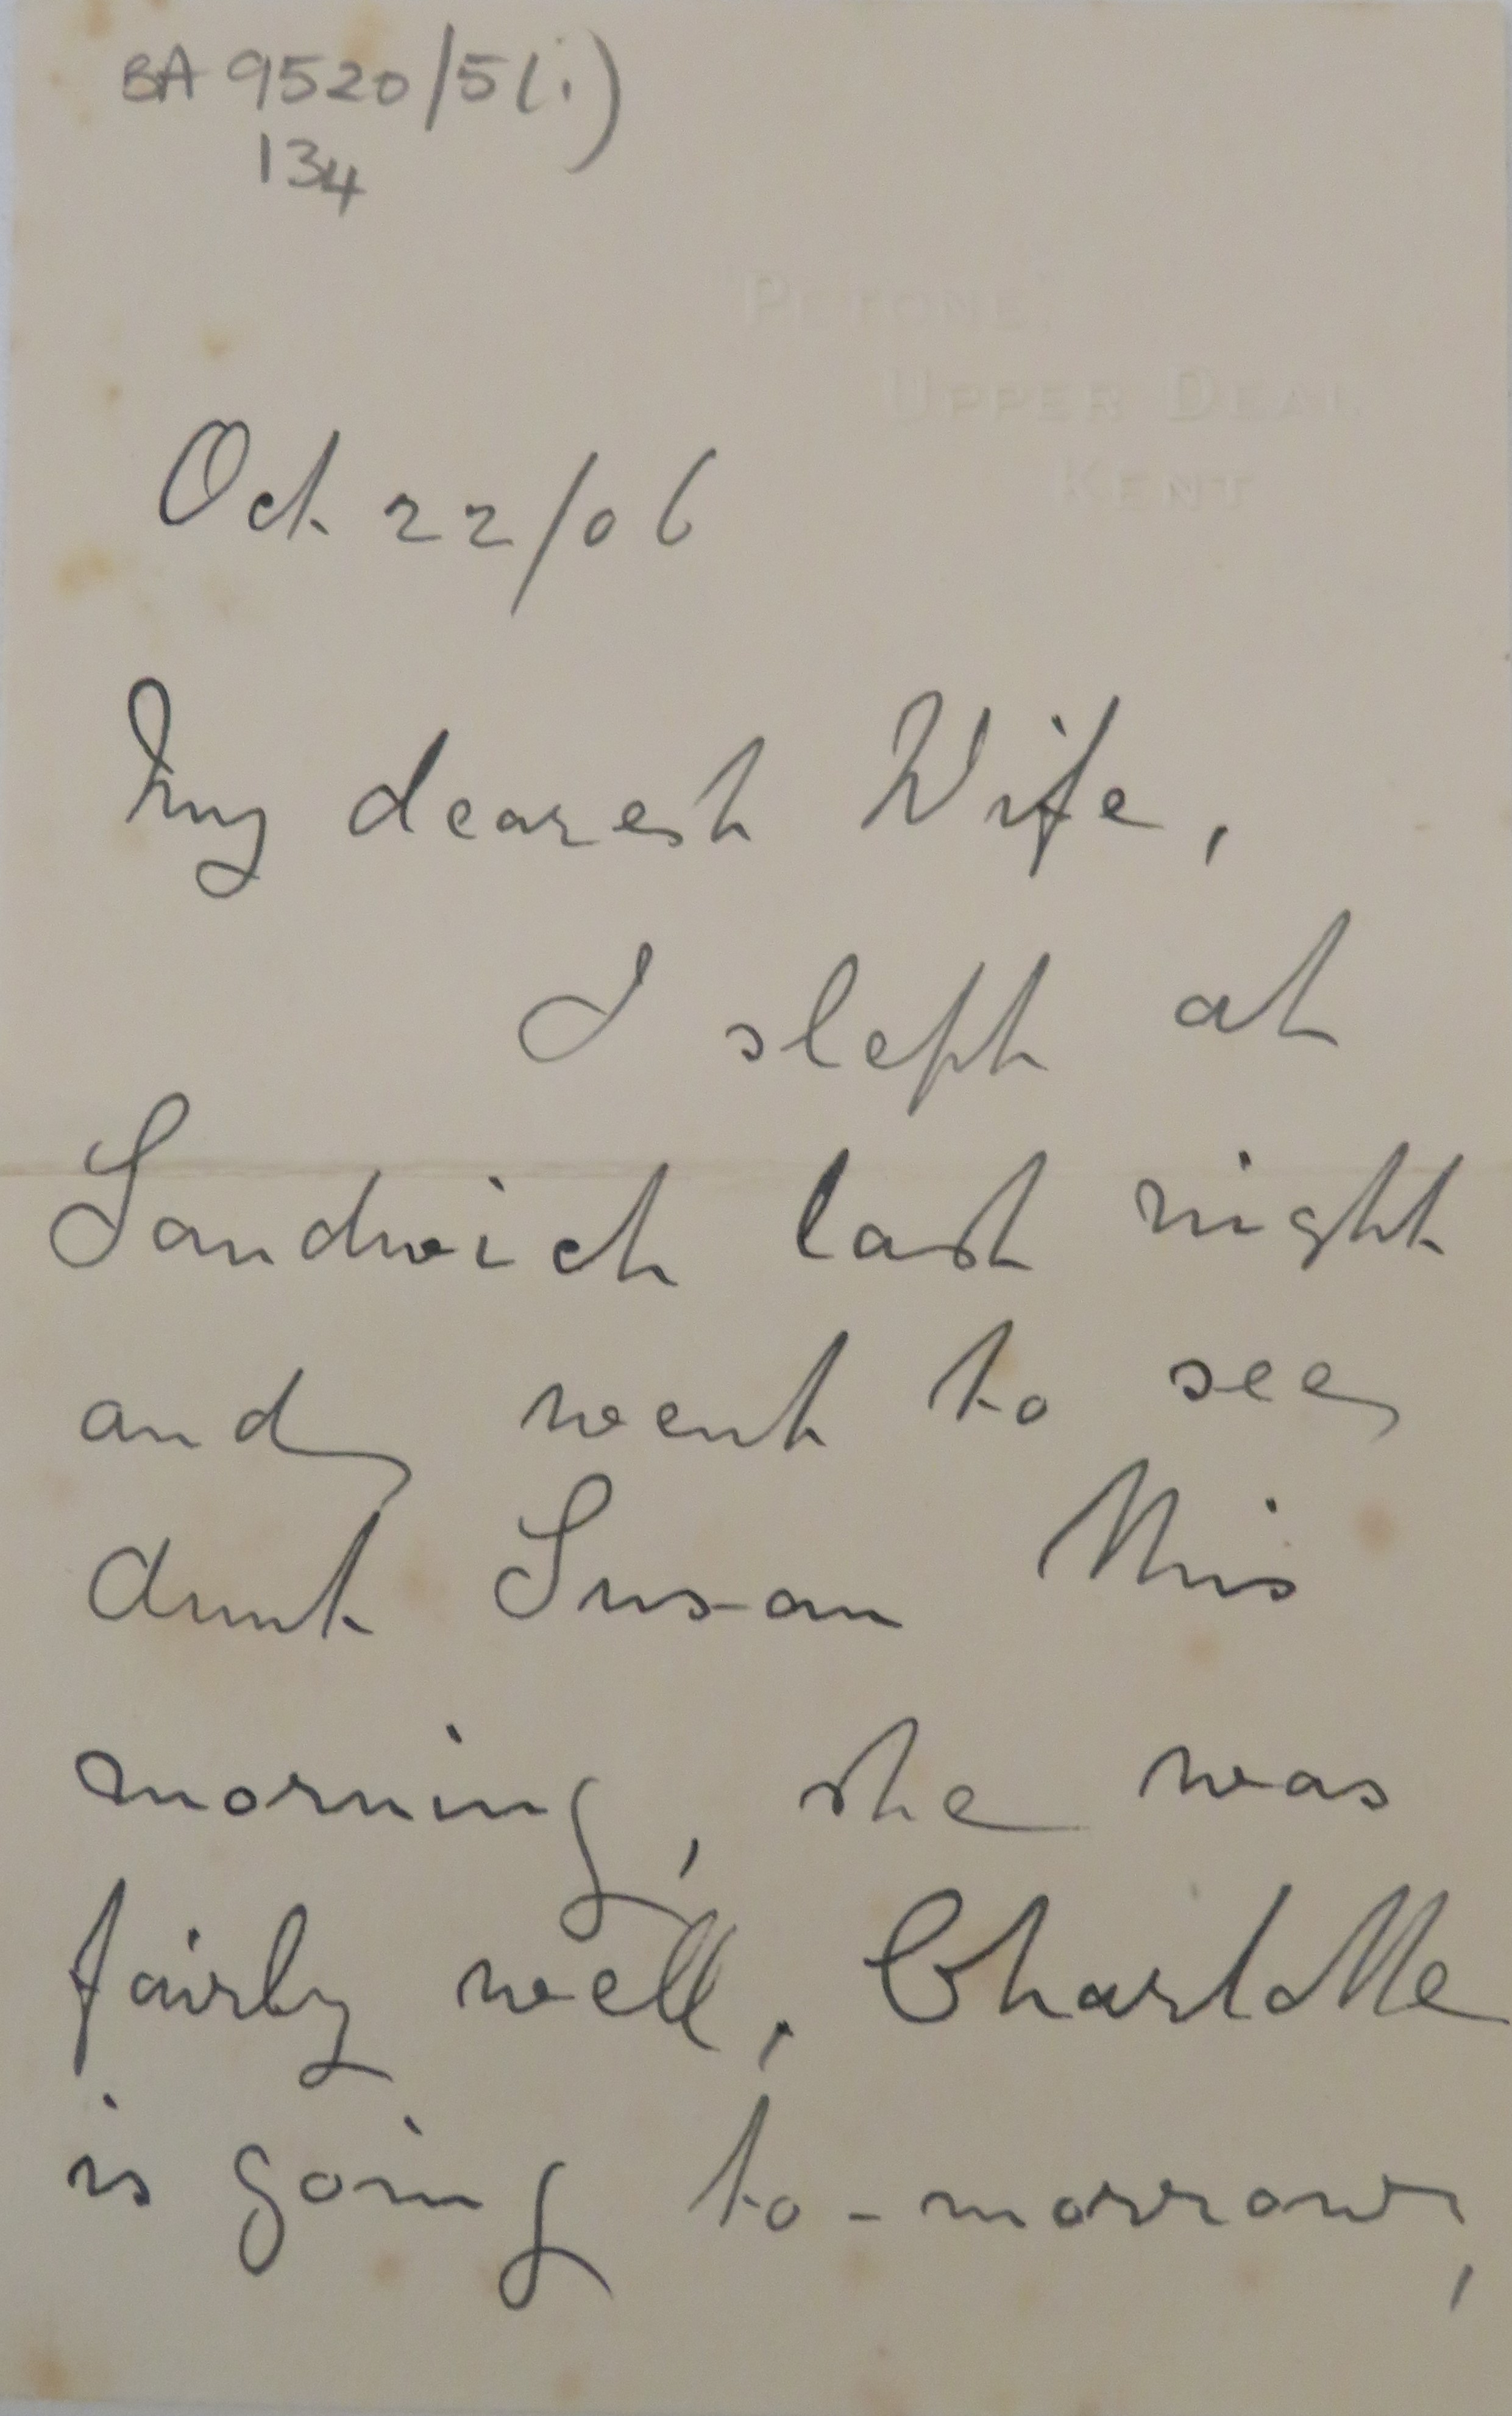 BA 9520/5(i)
134
"PETONE",
UPPER DEAL,
KENT
Oct 22/06
My dearest Wife,
I slept at
Sandwich last night
and went to see
Aunt Susan this
morning, she was
fairly well, Charlotte
is going to-morrow,